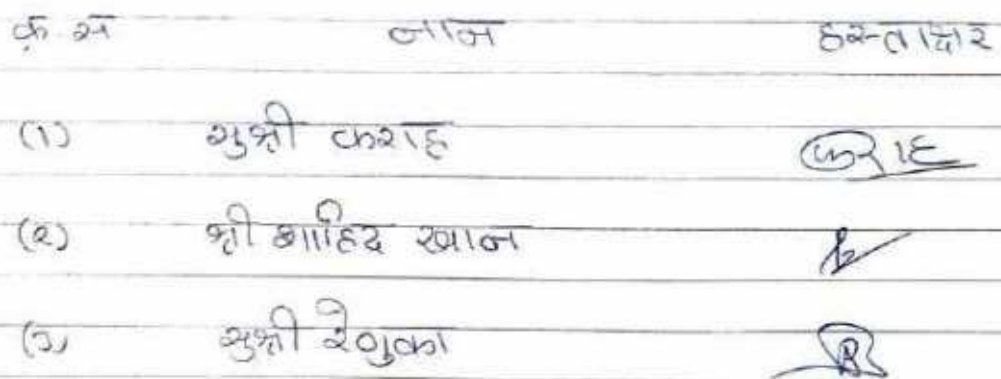 क्र. स नाम हस्ताक्षर
(1) सुश्री कराह कराह
(२) श्री शाहिद खान
(३) सुश्री रेणुका